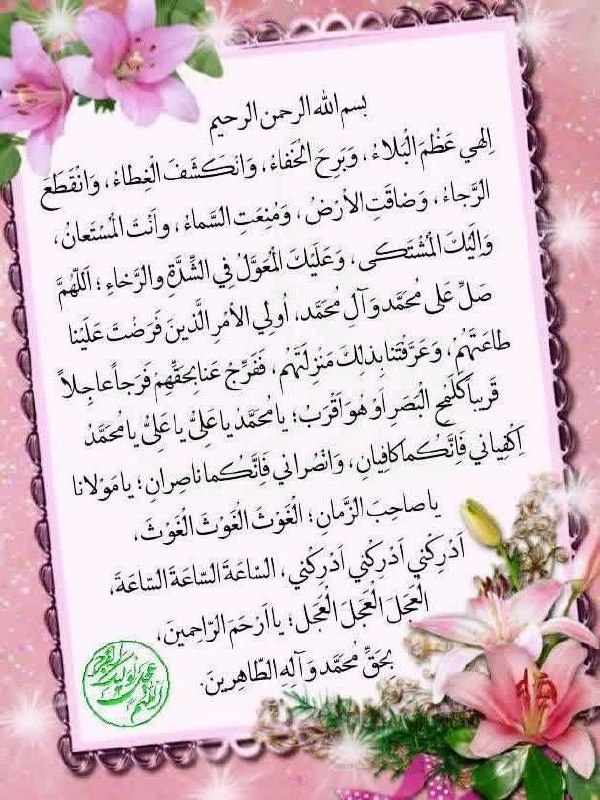 بسم الله الرحمن الرحيم
اِلهي عَظُمَ الْبَلاءُ، وَبَرِحَ الْخَفاءُ، وَانْكَشَفَ الْغِطاءُ، وَانْقَطَعَ
الرَّجاءُ، وَضاقَتِ الأرْضُ، وَمُنِعَتِ السَّماءُ، واَنْتَ الْمُسْتَعانُ،
وَاِلَيْكَ الْمُشْتَكى، وَعَلَيْكَ الْمُعَوَّلُ فِي الشِّدَّةِ والرَّخاءِ؛ اَللّهُمَّ
صَلِّ عَلى مُحَمَّد وَآلِ مُحَمَّد، اُولِي الأمْرِ الَّذينَ فَرَضْتَ عَلَيْنا
طاعَتَهُمْ، وَعَرَّفْتَنا بِذلِكَ مَنْزِلَتَهُم، فَفَرِّجْ عَنا بِحَقِّهِمْ فَرَجاً عاجِلاً
قَريباً كَلَمْحِ الْبَصَرِ اَوْ هُوَ اَقْرَبُ؛ يا مُحَمَّدُ يا عَلِيُّ يا عَلِيُّ يا مُحَمَّدُ
اِكْفِياني فَاِنَّكُما كافِيانِ، وَانْصُراني فَاِنَّكُما ناصِرانِ؛ يا مَوْلانا
يا صاحِبَ الزَّمانِ؛ الْغَوْثَ الْغَوْثَ الْغَوْثَ،
اَدْرِكْني اَدْرِكْني اَدْرِكْني، السّاعَةَ السّاعَةَ السّاعَةَ،
الْعَجَلَ الْعَجَلَ الْعَجَل؛ يا اَرْحَمَ الرّاحِمينَ،
بِحَقِّ مُحَمَّد وَآلِهِ الطّاهِرينَ.
اللهم عجل لوليك الفرج